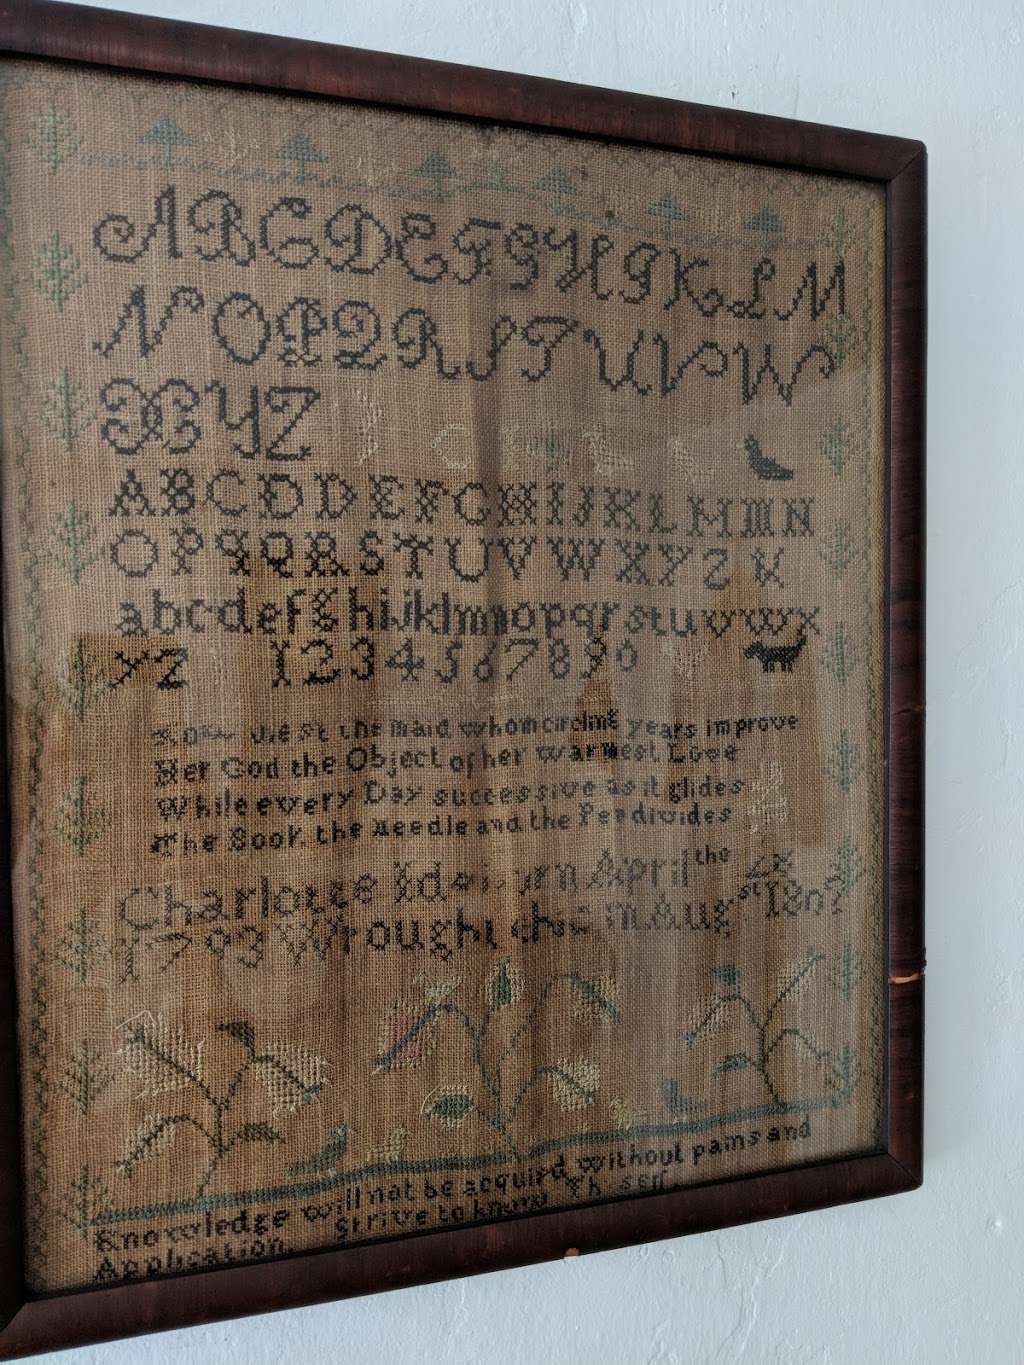 ABCDEFGHIKLM
NOPQRSTUVW
XYZ
ABCDDEFGHIJKLMMN
OPqQRSTUVWXYZ
abcdefghijklmnopqrstuvwx
yz 1234567890
the maid whom circling years improve
Her God the Object of her warmest Love
While every Day successive as it glides
The Book the Needle and the Pen divides
Charlotte born April the
1793 Wrought this in Aug st 1807
Knowledge will not be acquird without pains and
Application. Strive to know